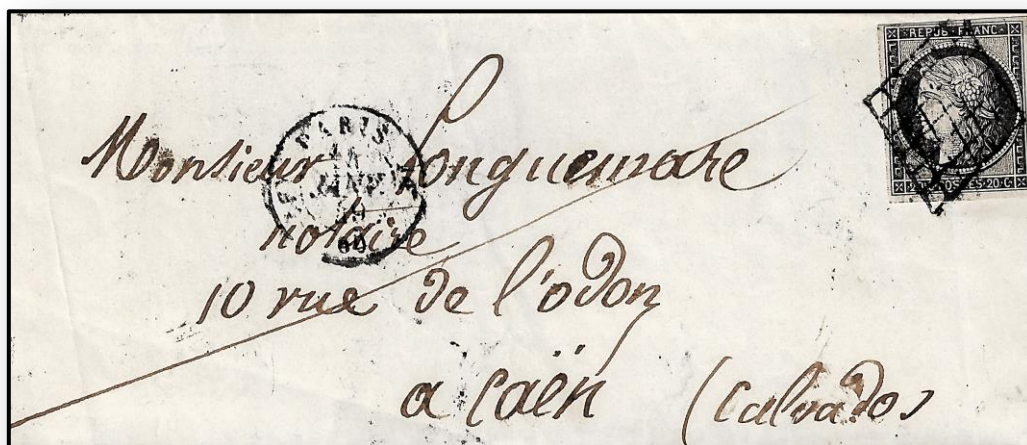 REPUB · FRANC ·
PARIS
JANV
Monsieur Longuemare
notaire
10 rue de l'odon
a Caën (Calvados)